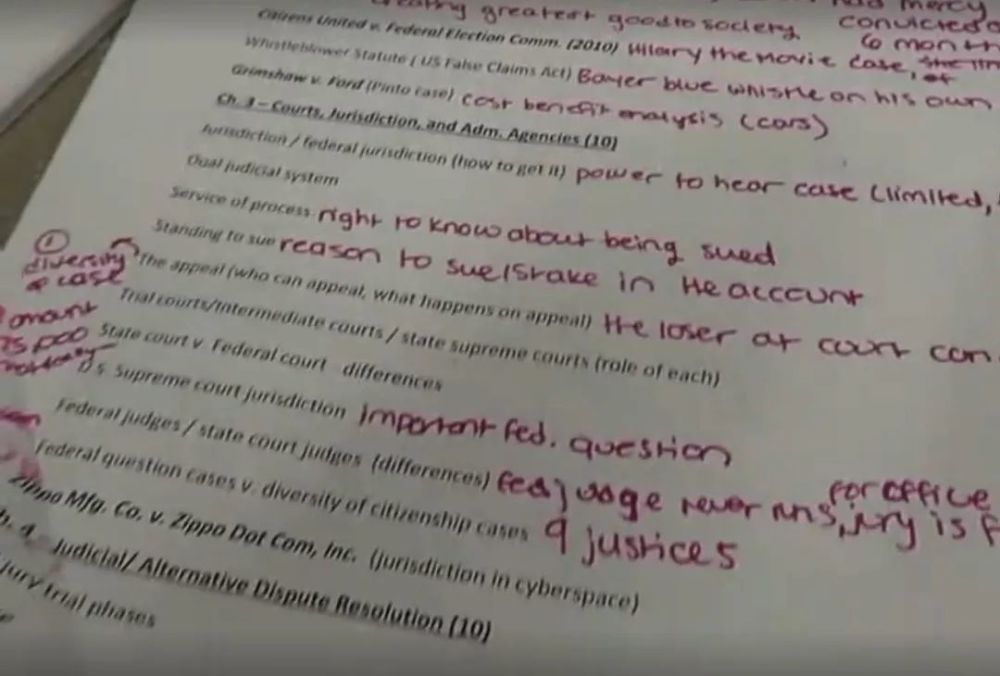 creating greatest good to society
mercy
convicted
6 month
Citizens United v. Federal Election Comm. (2010) Hilary the movie case,
Whistleblower Statute ( US False Claims Act) Bayer blue whistle on his own
Grimshaw v. Ford (Pinto case) cost benefit analysis (cars)
Ch. 3 – Courts, Jurisdiction, and Adm. Agencies (10)
Jurisdiction / federal jurisdiction (how to get it) power to hear case (limited,
Dual judicial system
Service of process right to know about being sued
Standing to sue reason to sue/stake in the account
① diversity of case
The appeal (who can appeal, what happens on appeal) the loser at court can
Trial courts/intermediate courts / state supreme courts (role of each)
amount 75,000
State court v. Federal court differences
U.S. Supreme court jurisdiction important fed. question
Federal judges / state court judges (differences) fed judge never runs for office, jury is
Federal question cases v. diversity of citizenship cases 9 justices
Zippo Mfg. Co. v. Zippo Dot Com, Inc. (jurisdiction in cyberspace)
h. 4 Judicial/ Alternative Dispute Resolution (10)
jury trial phases